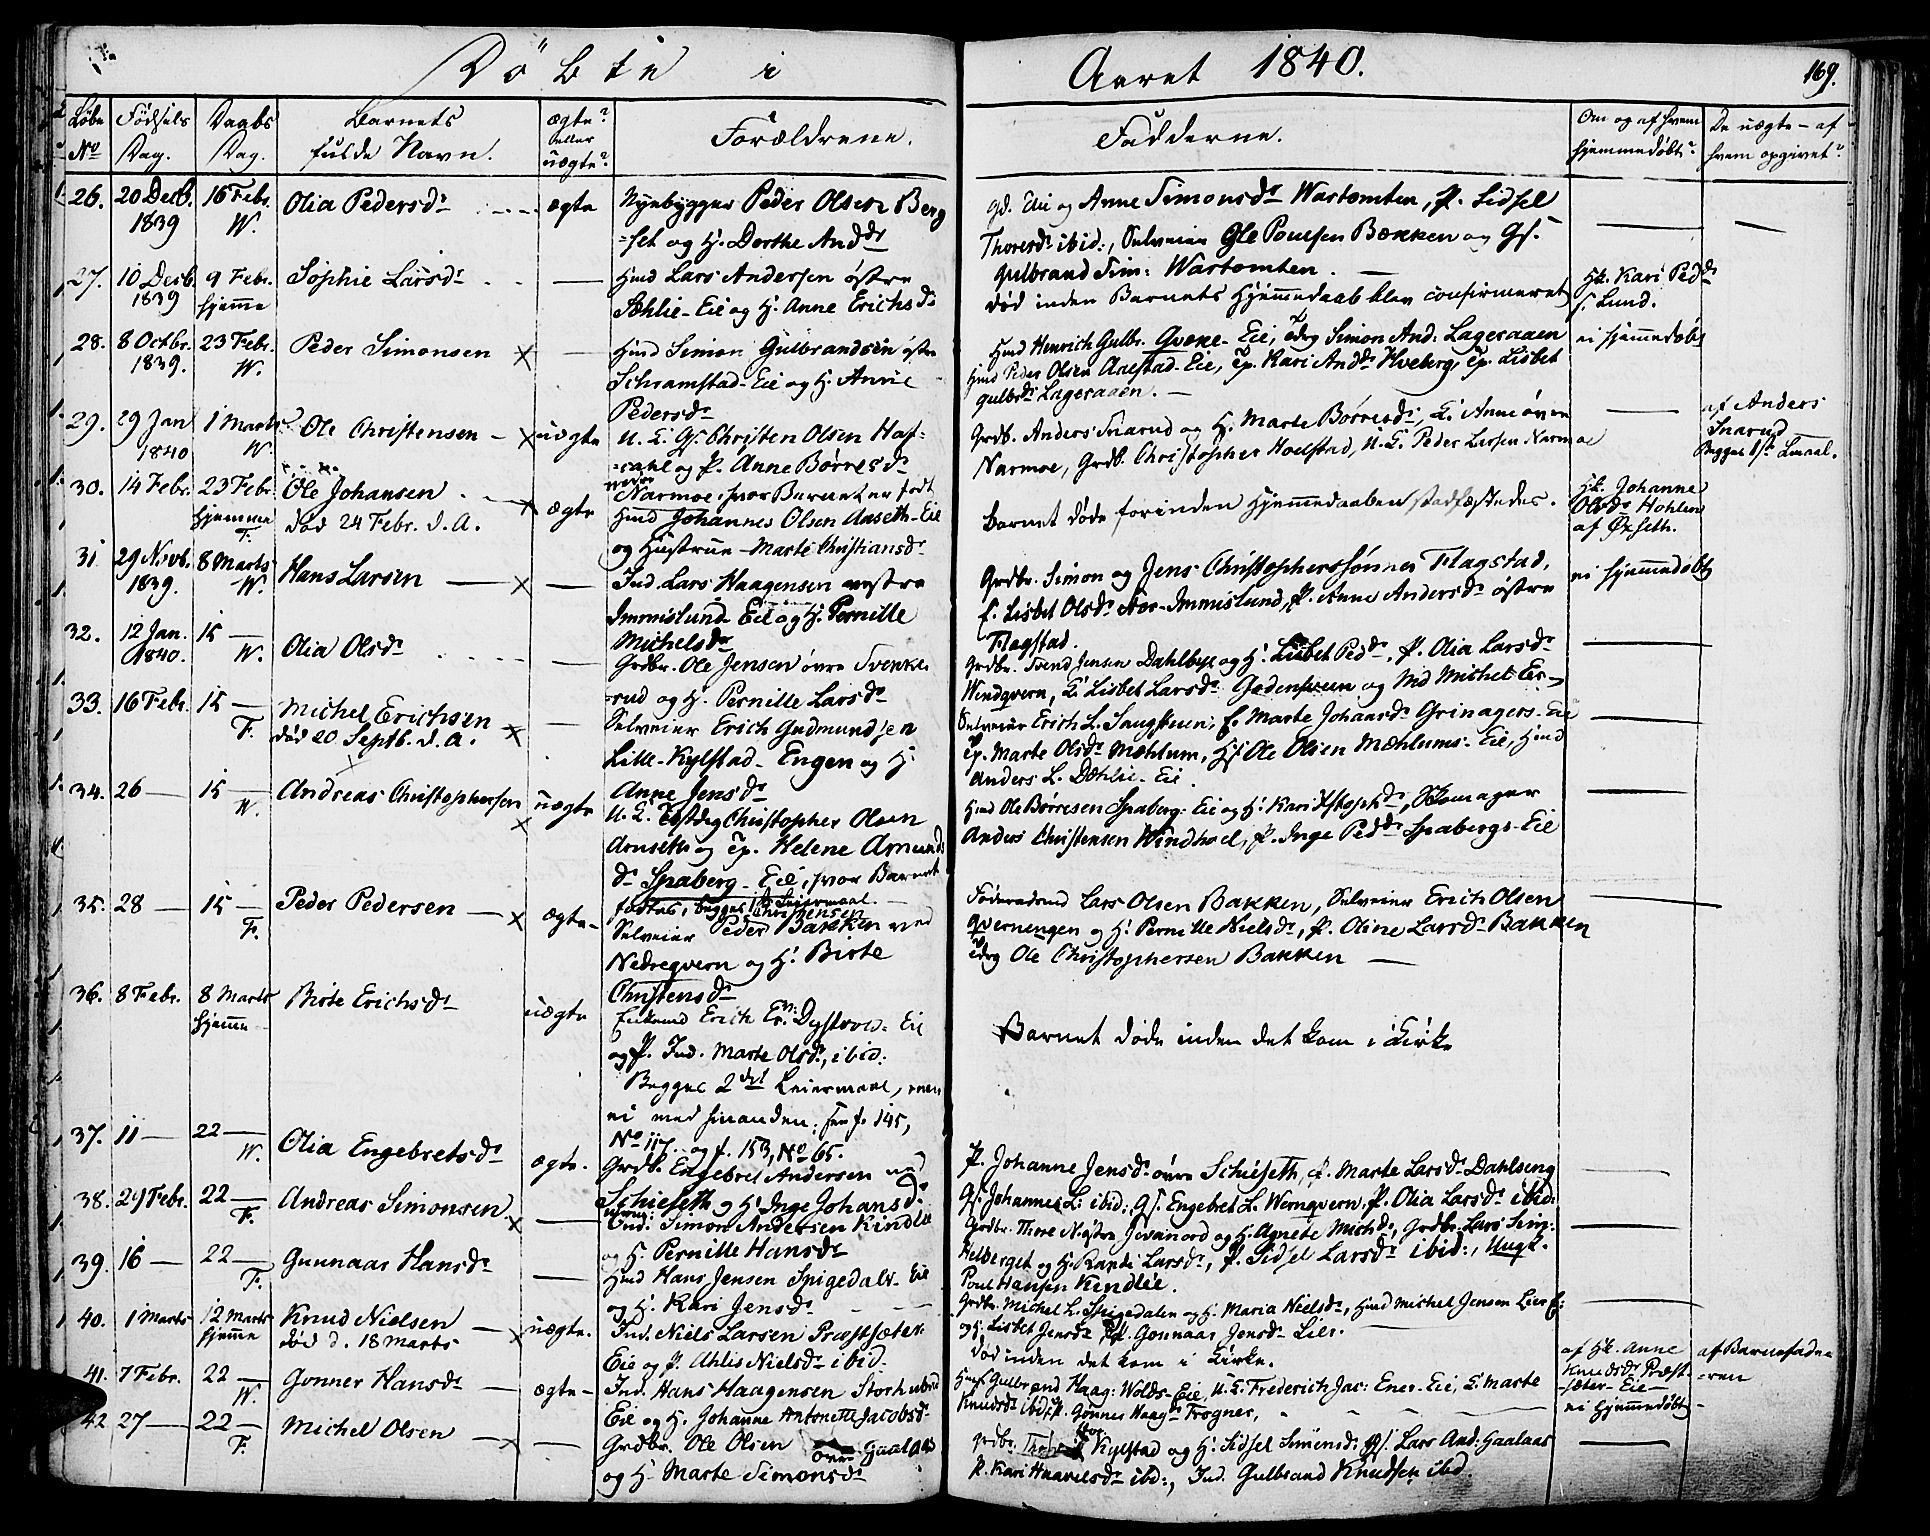 Döbte i Aaret 1840. 169.
Løbe No Fødsels Dag. Daabs Dag. Barnets fulde Navn. ægte? eller uægte? Forældrene. Fadderne. Om og af hvem hjemmedøbt? De uægte – af hvem opgivet?
26. 20 Decb. 1839 16 Febr. W. Olia Pedersdr ægte Nyebygger Peder Olsen Berg
=set og H. Dorthe Anddr
gd. Eie og Anne Simonsdr Wastomten, P. Lidsel
Thoresdr ibid:, Selveier Ole Poulsen Bækken og Gs.
Gulbrand Sim: Wastomten. —
27. 10 Decb. 1839 9 Febr. hjemme Sophie Larsdr — Hmd Lars Andersen østre
Sæhlie-Eie og H. Anne Erichsdr
død inden Barnets Hjemmedaab blev confirmeret
Hk. Kari Peddr
s. Lund.
28. 8 Octbr. 1839. 23 Febr. W. Peder Simonsen × — Hmd Simon Gulbrandsen østre
Schramstad-Eie og H. Anne
Pedersdr
Hmd Henrich Gulbr. Qvæne-Eie, Simon And: Lageraaen
Hmd Peder Olsen Aaestad-Eie, Tp. Kari Anddr Hveberg, Tp. Lisbet
Gulbrdr Lageraaen. —
ei hjemmedøbt
29. 29 Jan 1840 1 Marts W. Ole Christensen × uægte U. K. Gs. Christen Olsen
og P. Anne Børresdr
Narmoe, hvor Barnet er født
Grdb. Anders Snarud og H. Marte Børresdr, E. Anne øvre
Narmoe, Grdb. Christopher Hoelstad, U. K. Peder Larsen Narmoe
af Anders
Snarud
Begges 1ste Lmaal.
30. 14 Febr. 23 Febr. hjemme F. Ole Johansen × ægte
død 24 Febr. d. A.
Hmd Johannes Olsen Aaseth-Eie
og Hustrue Marte Christiansdr
Barnet døde forinden Hjemmedaaben stadfæstedes.
Hk. Johanne
Olsdr Hohlen
af Øxseth.
31. 29 Novb. 1839. 8 Marts W. Hans Larsen × — Ind. Lars Haagensen vestre
Immislund-Eie og H. Pernille
Michelsdr
Grdbr. Simon og Jens Christopherssønner Flagstad,
E. Lisbet Olsdr Immislund, P. Anne Andersdr østre
Flagstad.
ei hjemmedøbt
32. 12 Jan. 1840. 15 — W. Olia Olsdr — Grdbr. Ole Jensen øvre Svenke-
rud og H. Pernille Larsdr
Grdbr. Svend Jensen Dahlbye og H. Lisbet Peddr, P. Olia Larsdr
Windqvern, E. Lisbet Larsdr
33. 16 Febr. 15 — F. Michel Erichsen × —
død 20 Septb. d. A.
Selveier Erich Gudmundsen
Lille-Kylstad-Engen og H.
Anne Jensdr
Selveier Erich L. E. Marte Johansdr Grinagers-Eie
Tp. Marte Olsdr Mæhlum, Gs. Ole Olsen Mæhlums-Eie, Hmd
Anders L. Dæhlie-Eie
34. 26 — 15 — W. Andreas Christophersen × uægte U. K. Christopher Olsen
Arneseth og Tp. Helene Amund-
dr Spaberg-Eie, hvor Barnet
fødtes, begges 1ste Leiermaal. —
Hmd Ole Børresen Spaberg-Eie og H. Kari Xstophdr, Skomager
Anders Christensen Windhoel, P. Inge Peddr Spabergs-Eie
35. 28 — 15 — F. Peder Pedersen × ægte — Selveier Peder Christensen Bakken ved
Nedreqvern og H. Birte
Christensdr
Føderaadsmd Lars Olsen Bakken, Selveier Erich Olsen
Qvernengen og H. Pernille Nielsdr, P. Oline Larsdr Bakken
Ole Christophersen Bakken —
36. 8 Febr. 8 Marts hjemme Birte Erichsdr uægte Enkemd Erich Er: Dystvold-Eie
og P. Ind. Marte Olsdr, ibid.
Begges 2det Leiermaal, men
ei med hinanden; see f. 145,
No 117. og f. 153, No 65.
Barnet døde inden det kom i Kirke
37. 11 — 22 — W. Olia Engebretsdr ægte. Grdb. Engebret Andersen ned
Schieseth og H. Inge Johansdr
P. Johanne Jensdr øvre Schieseth, P. Marte Larsdr Dahlseng
Gs. Johannes L: ibid:, Gs. Engebret L. Wernqvern, P. Olia Larsdr ibid:
38. 29 Febr. 22 — F. Andreas Simonsen × — Ind: Simon Andersen Kindlie
og H. Pernille Hansdr
Grdbr. og H. Agnete Michdr, Grdbr. Lars Sim:
Helberget og H. Randi Larsdr, P. Sidsel Larsdr ibid:, Ungk.
Poul Hansen Kindlie.
39. 16 — 22 — F. Gunnaar Hansdr — Hmd Hans Jensen Spigedals-Eie
og H. Kari Jensdr
Grdbr. Michel L. Spigedalen og H. Maria Nielsdr, Hmd Michel Jensen Lier E:
og H. Lisbet Jensdr P. Gonnaar Jensdr Lier. —
40. 1 Marts 12 Marts hjemme Knud Nielsen × uægte.
død d. 18 Marts
Ind. Niels Larsen Præstsæter-
Eie og P. Ahlis Nielsdr ibid.
Død inden det kom i Kirke.
af Hk. Anne
Knudsdr Præst-
-sæter-Eie —
af Barnefade-
-ren
41. 7 Febr. 22 — W. Gonner Hansdr — ægte — Ind. Hans Haagensen Storhubred
Eie og H. Johanne Antonette Jacobsdr
Hmd Gulbrand Haag: Wolds-Eie, U. K. Frederich Jac: Ener-Eie, E. Marte
Knudsdr ibid: P. Gonner Haagdr Frogner,
ei hjemmedøbt
42 27 — 22 — F. Michel Olsen × — Grdbr. Ole Olsen øvre Gaalaas
og H. Marte Simonsdr
Grdbr. Kylstad og H. Sidsel Simensdr: Gs. Lars And: Gaalaas
P. Kari Haavelsdr ibid:, Ind. Gulbrand Knudsen ibid.